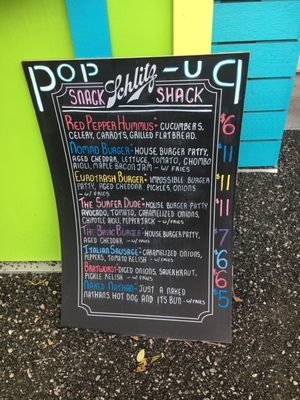 POP-UP
Schlitz
SNACK SHACK
RED PEPPER HUMMUS- CUCUMBERS, $6
CELERY, CARROTS, GRILLED FLATBREAD.
NOMAD BURGER- HOUSE BURGER PATTY, $11
AGED CHEDDAR, LETTUCE, TOMATO, CHOMBO
AIOLI, MAPLE BACON JAM - W/ FRIES
EUROTRASH BURGER- IMPOSSIBLE BURGER $11
PATTY, AGED CHEDDAR, PICKLES, ONIONS
- W/ FRIES
THE SURFER DUDE- HOUSE BURGER PATTY $11
AVOCADO, TOMATO, CARAMELIZED ONIONS,
CHIPOTLE AIOLI, PEPPERJACK - W/ FRIES
THE BASIC BURGER- HOUSE BURGER PATTY, $7
AGED CHEDDAR - W/ FRIES
ITALIAN SAUSAGE- CARAMELIZED ONIONS, $6
PEPPERS, TOMATO RELISH - W/ FRIES
BRATWURST- DICED ONIONS, SAUERKRAUT, $6
PICKLE RELISH - W/ FRIES
NAKED NATHAN- JUST A NAKED $5
NATHANS HOT DOG AND ITS BUN - W/ FRIES